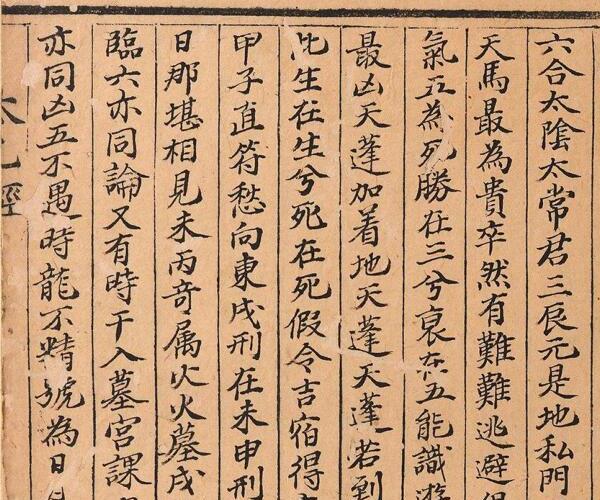 六合太陰太常君三辰元是地私門
天馬最為貴卒然有難難逃避
氣五為死勝在三兮衰在五能識
最凶天蓬加着地天蓬天蓬若到
此生在生兮死在死假令吉宿得
甲子直符愁向東戌刑在未申刑
日那堪相見未丙奇属火火墓戌
臨六亦同論又有時干入墓宮課
亦同凶五不遇時龍不精號為日